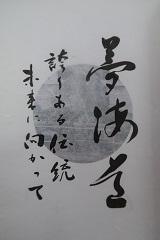 夢海道
誇りある伝統
未来に向かって